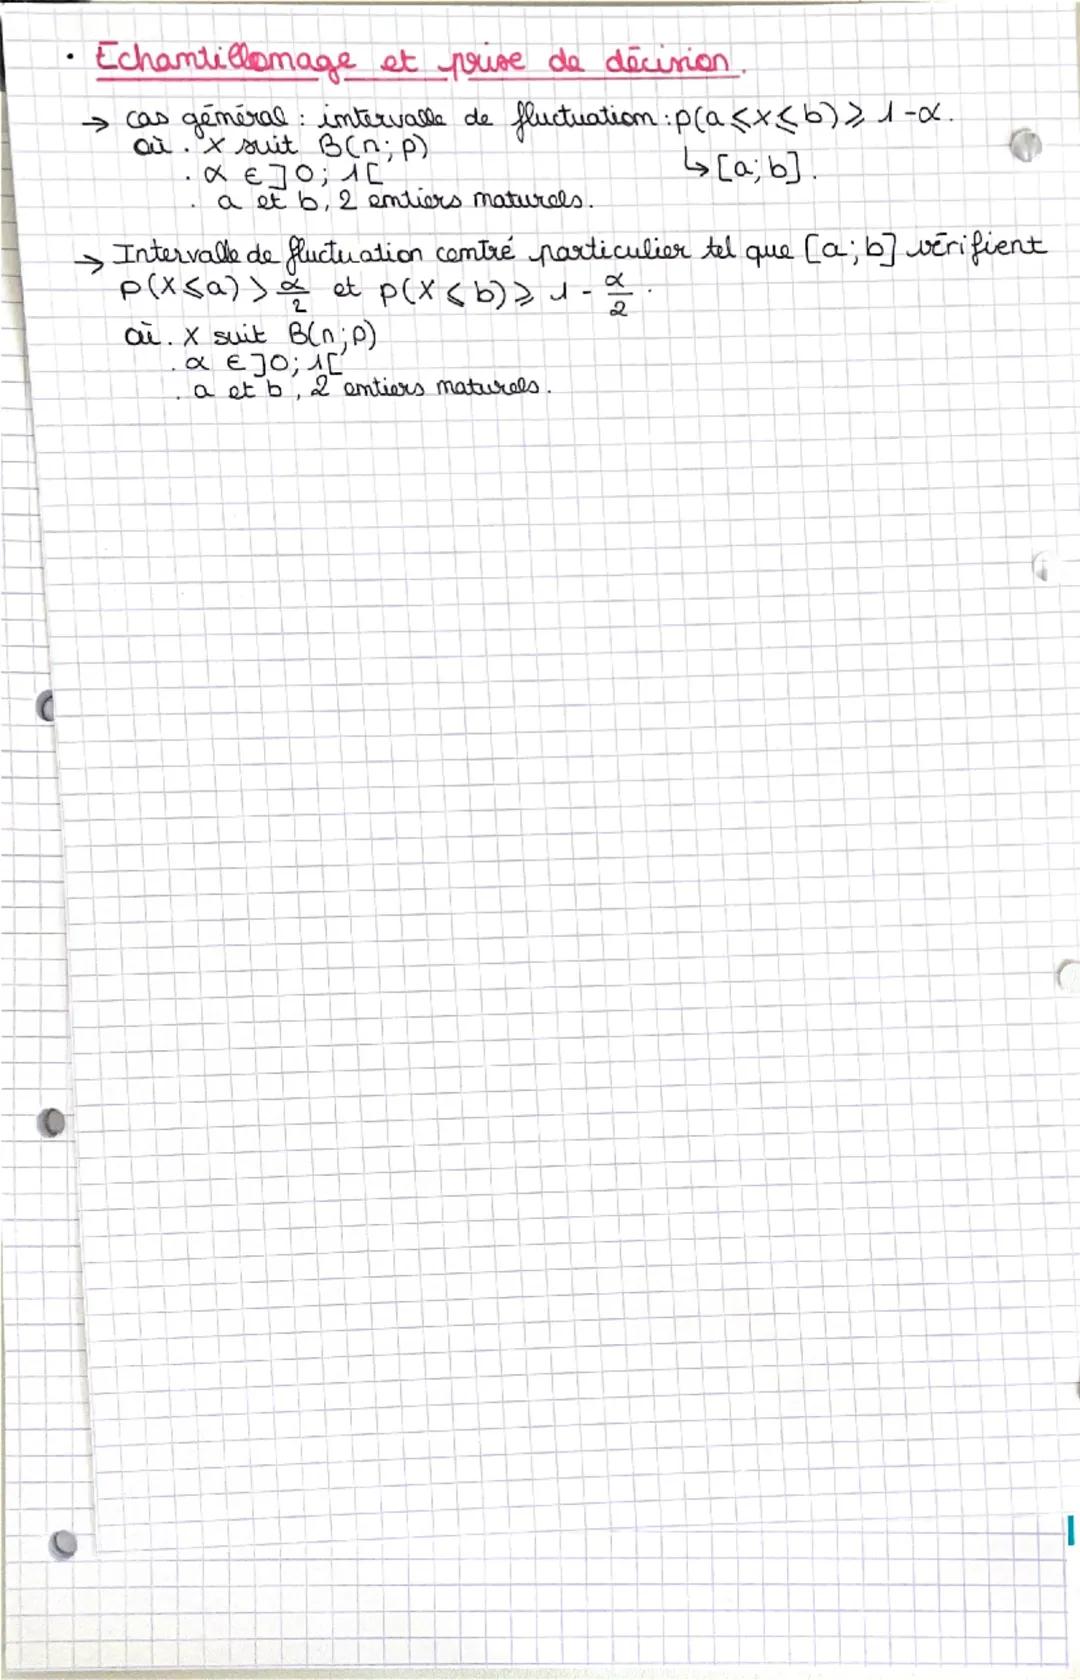 • Echantillonnage et prise de décision.
→ cas général : intervalle de fluctuation : p(a ≤ x ≤ b) ≥ 1-α.
où . X suit B(n; p)
↳ [a; b].
. α ∈ ]0; 1[
. a et b, 2 entiers naturels.
→ Intervalle de fluctuation centré particulier tel que [a; b] vérifient
p(X ≤ a) > α/2 et p(X ≤ b) ≥ 1 - α/2.
où . X suit B(n; p)
. α ∈ ]0; 1[
. a et b, 2 entiers naturels.